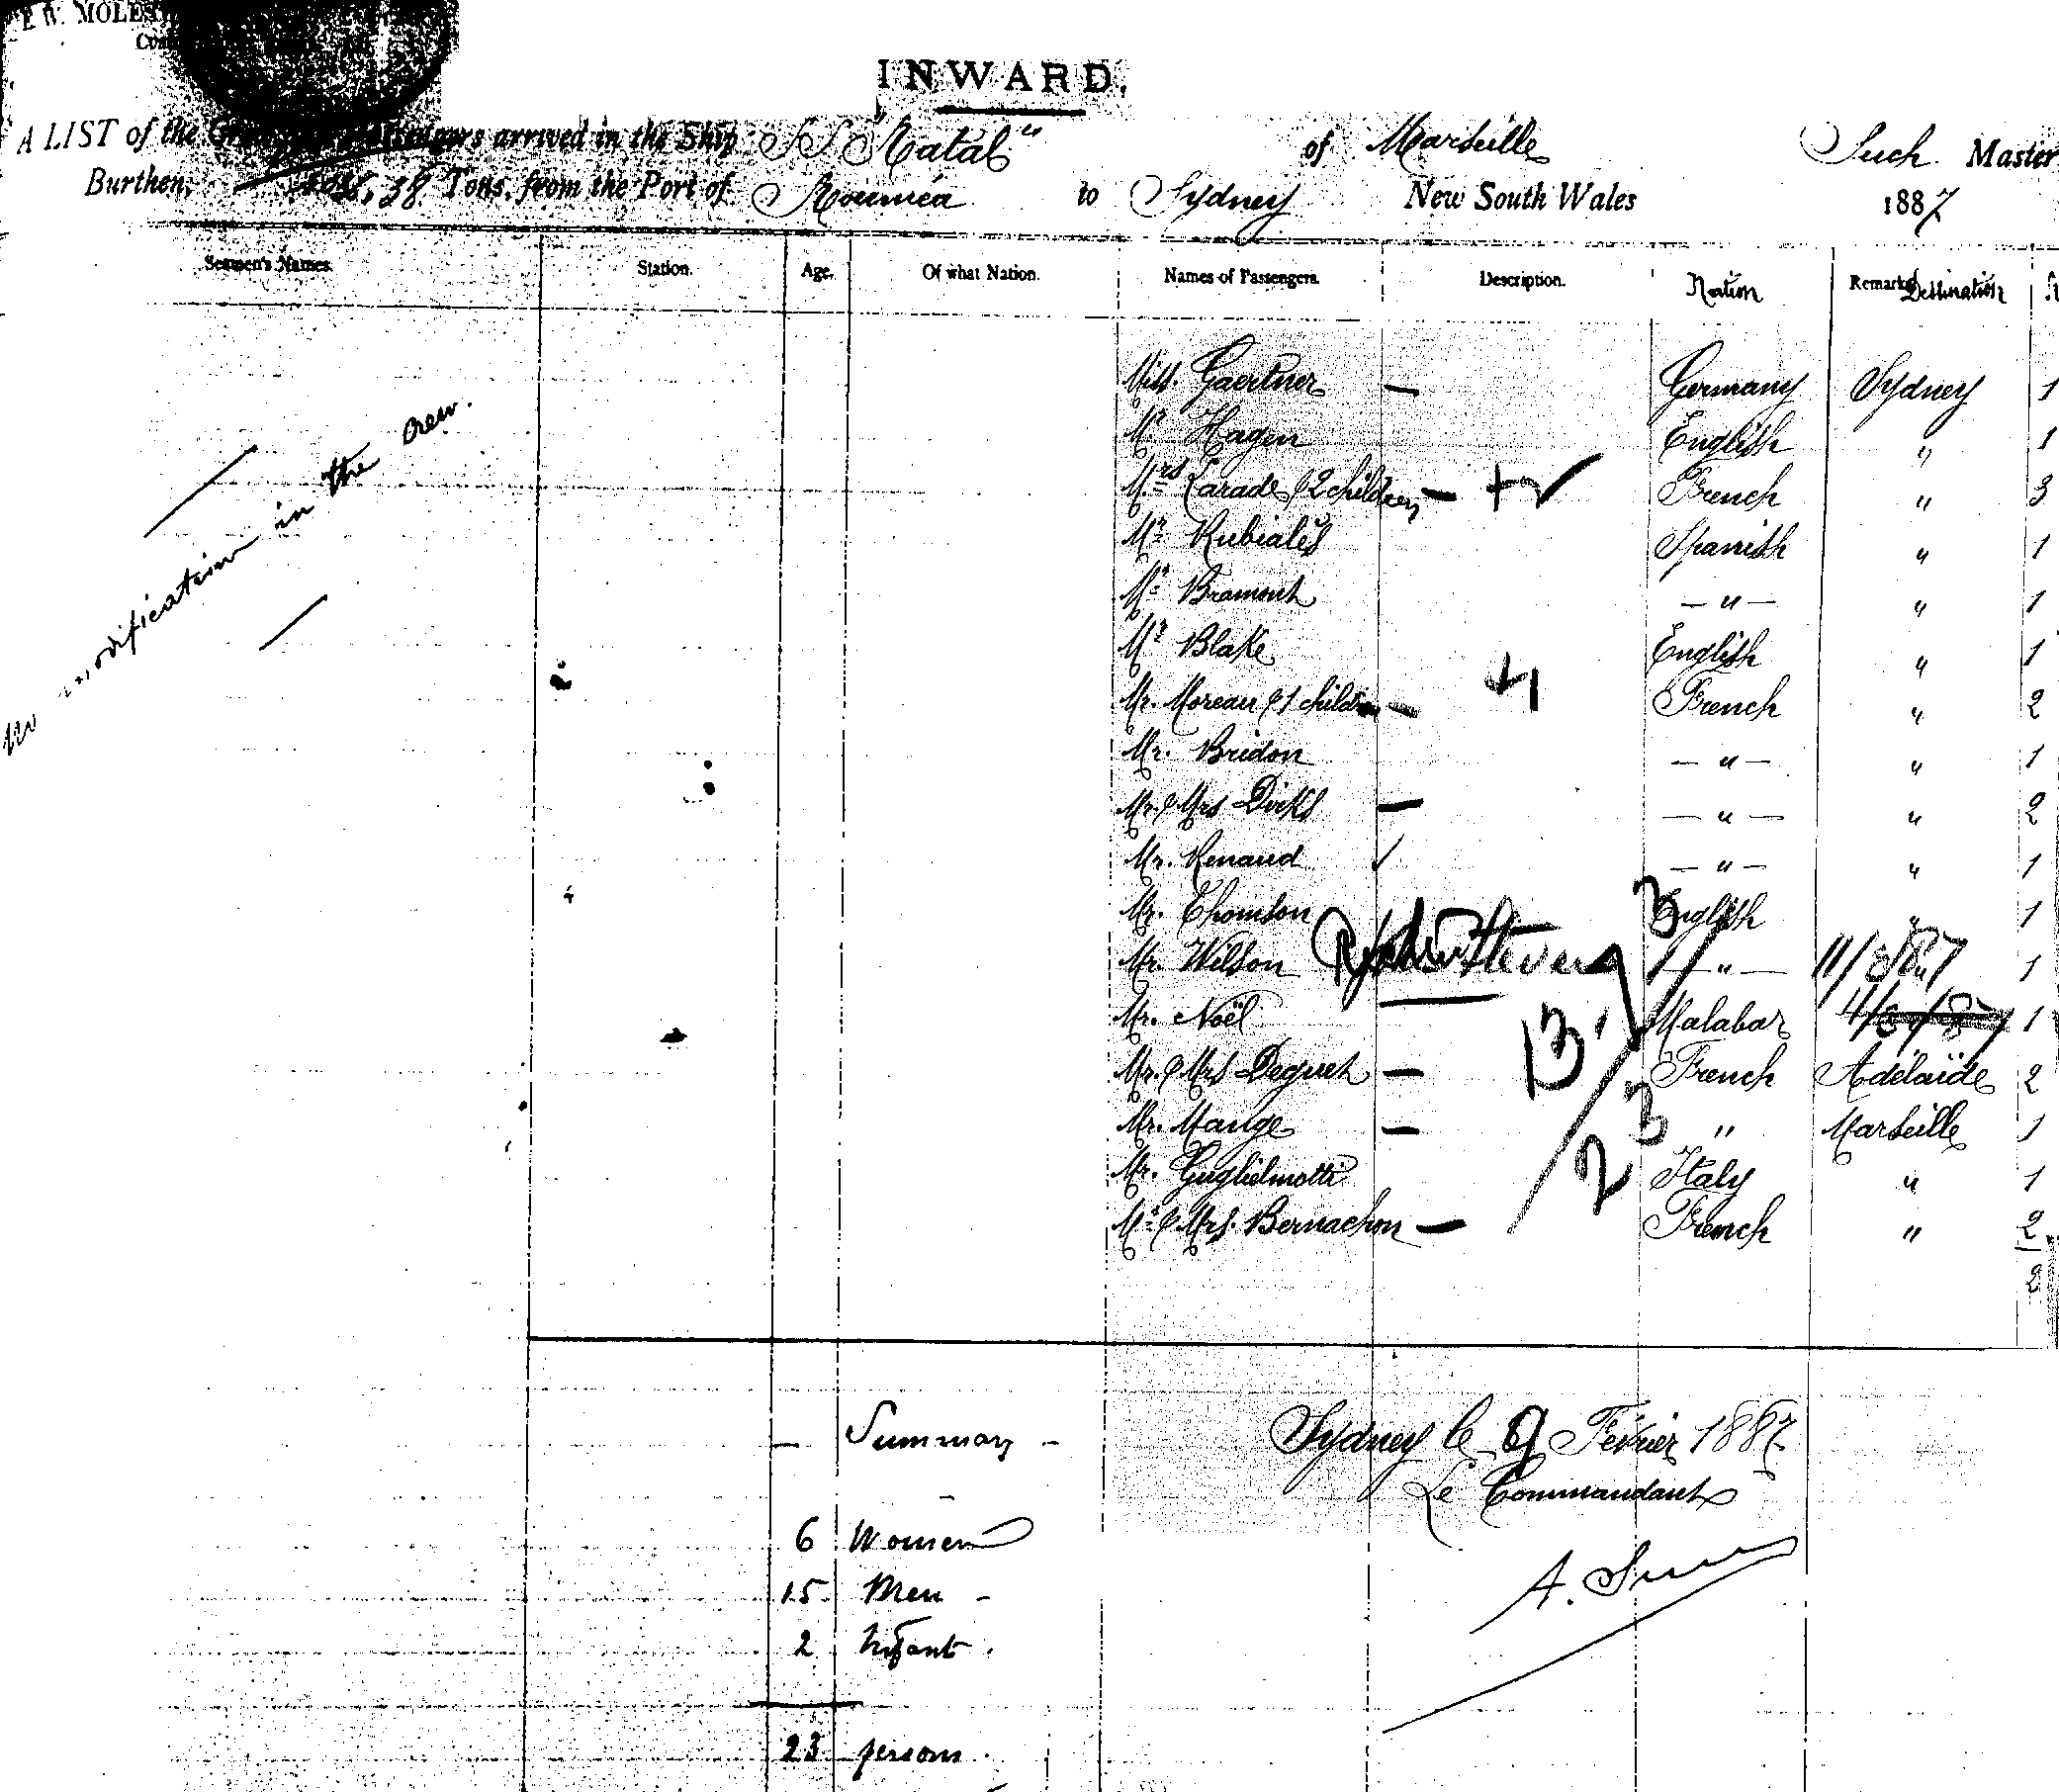 E. W. MOLES
INWARD.
A LIST of the Crew and Passengers arrived in the Ship SS "Natal" of Marseille Such Master
Burthen, Tons, from the Port of Nouméa to Sydney New South Wales 1887
Seamen's Names. Station. Age. Of what Nation. Names of Passengers. Description. Nation Remarks Destination
modification in the crew.
Miss. Gaertner — Germany Sydney 1
Mr Hagen English " 1
Mrs Larade & 2 children — + 2 French " 3
Mr Rubiales Spanish " 1
Mr Bramont — " — " 1
Mr Blake English " 1
Mr. Moreau & 1 children — + 1 French " 2
Mr. Bridon — " — " 1
Mr. & Mrs Dirks — — " — " 2
Mr. Renaud — " — " 1
Mr. Thomson English " 1
Mr. Wilson — " — " 1
11/2/87
Mr. Noël Malabar 1
13
Mr. & Mrs Deguet — French Adélaïde 2
Mr. Mange — " Marseille 1
23
Mr. Guglielmotti Italy " 1
Mr & Mrs. Bernachon — French " 2
2
— Summary — Sydney le 9 Février 1887
Le Commandant
6 Women
15 Men -
A.
2 Infant.
23 persons.